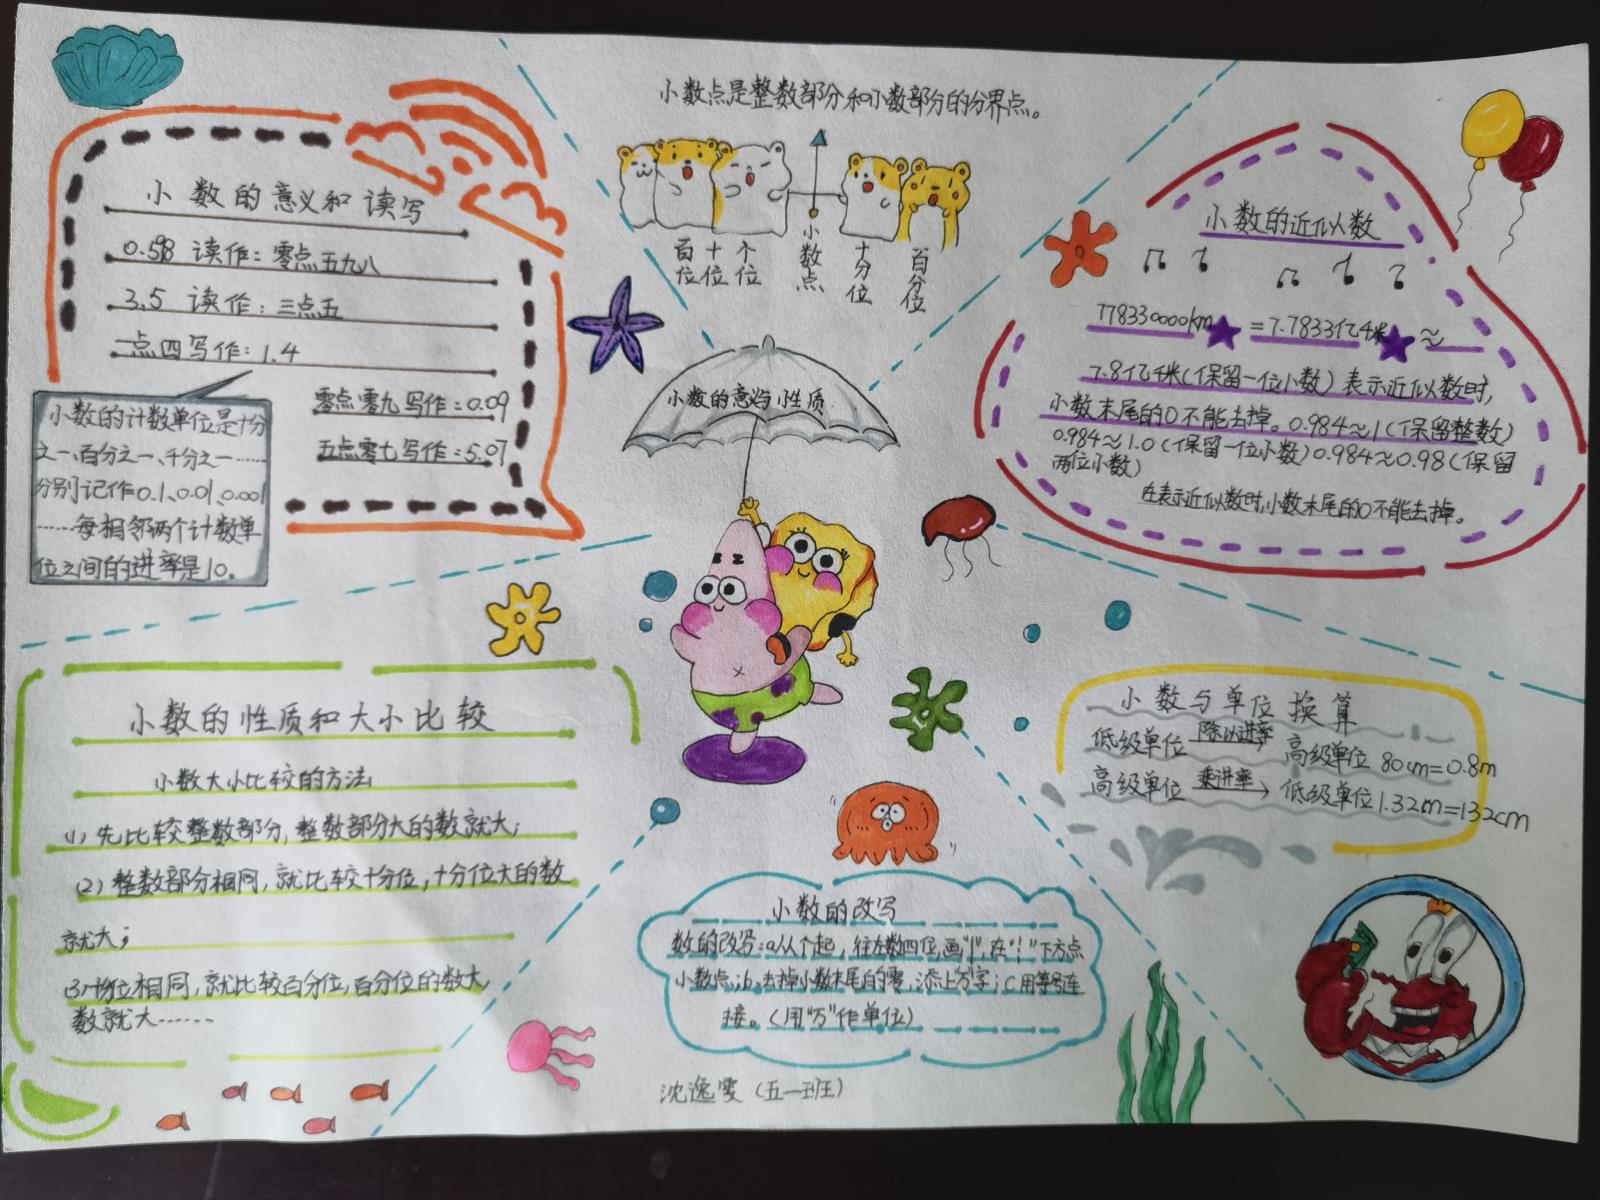 小数点是整数部分和小数部分的分界点。
百位
十位
个位
小数点
十分位
百分位
小数的意义和读写
0.598 读作：零点五九八
3.5 读作：三点五
一点四写作：1.4
零点零九写作：0.09
五点零七写作：5.07
小数的计数单位是十分
之一、百分之一、千分之一……
分别记作0.1、0.01、0.001
……每相邻两个计数单
位之间的进率是10。
小数的意义与性质
小数的近似数
778330000km = 7.7833亿千米 ≈
7.8亿千米(保留一位小数) 表示近似数时,
小数末尾的0不能去掉。0.984≈1(保留整数)
0.984≈1.0(保留一位小数)0.984≈0.98(保留
两位小数)
在表示近似数时,小数末尾的0不能去掉。
小数的性质和大小比较
小数大小比较的方法
(1) 先比较整数部分,整数部分大的数就大;
(2) 整数部分相同,就比较十分位,十分位大的数
就大;
(3)十分位相同,就比较百分位,百分位的数大,
数就大……
小数与单位换算
低级单位 除以进率 高级单位 80cm=0.8m
高级单位 乘进率 → 低级单位 1.32m=132cm
小数的改写
数的改写:a从个起,往左数四位,画"¦",在"¦"下方点
小数点;b.去掉小数末尾的零,添上"万"字;C用等号连
接。(用"万"作单位)
沈逸雯(五一班)